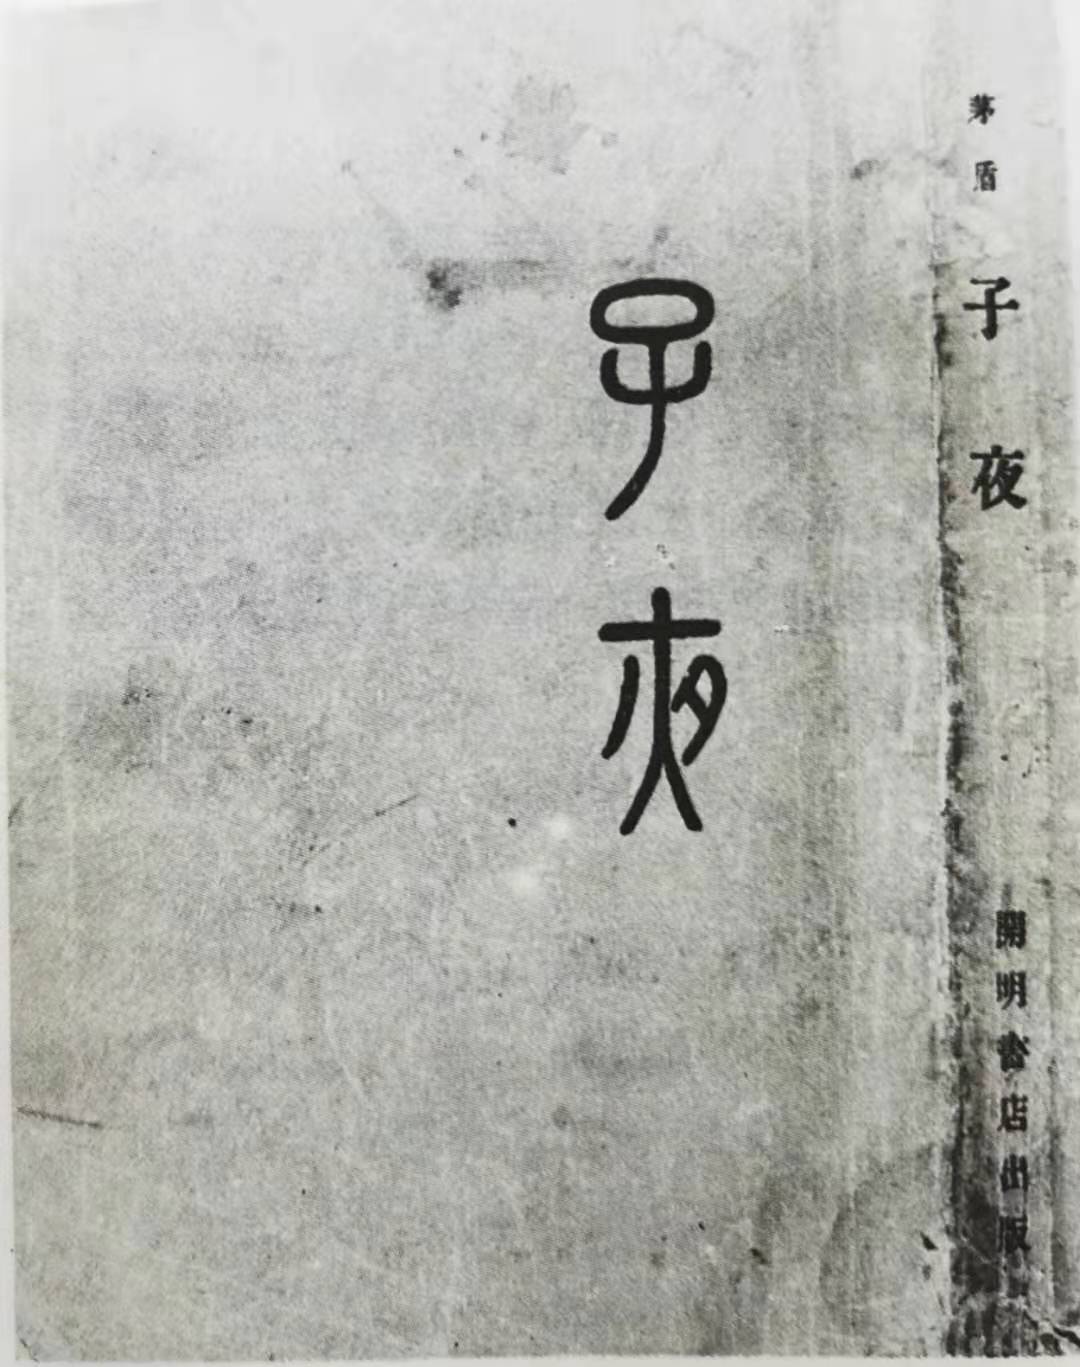 茅盾 子夜 開明書店出版
子夜